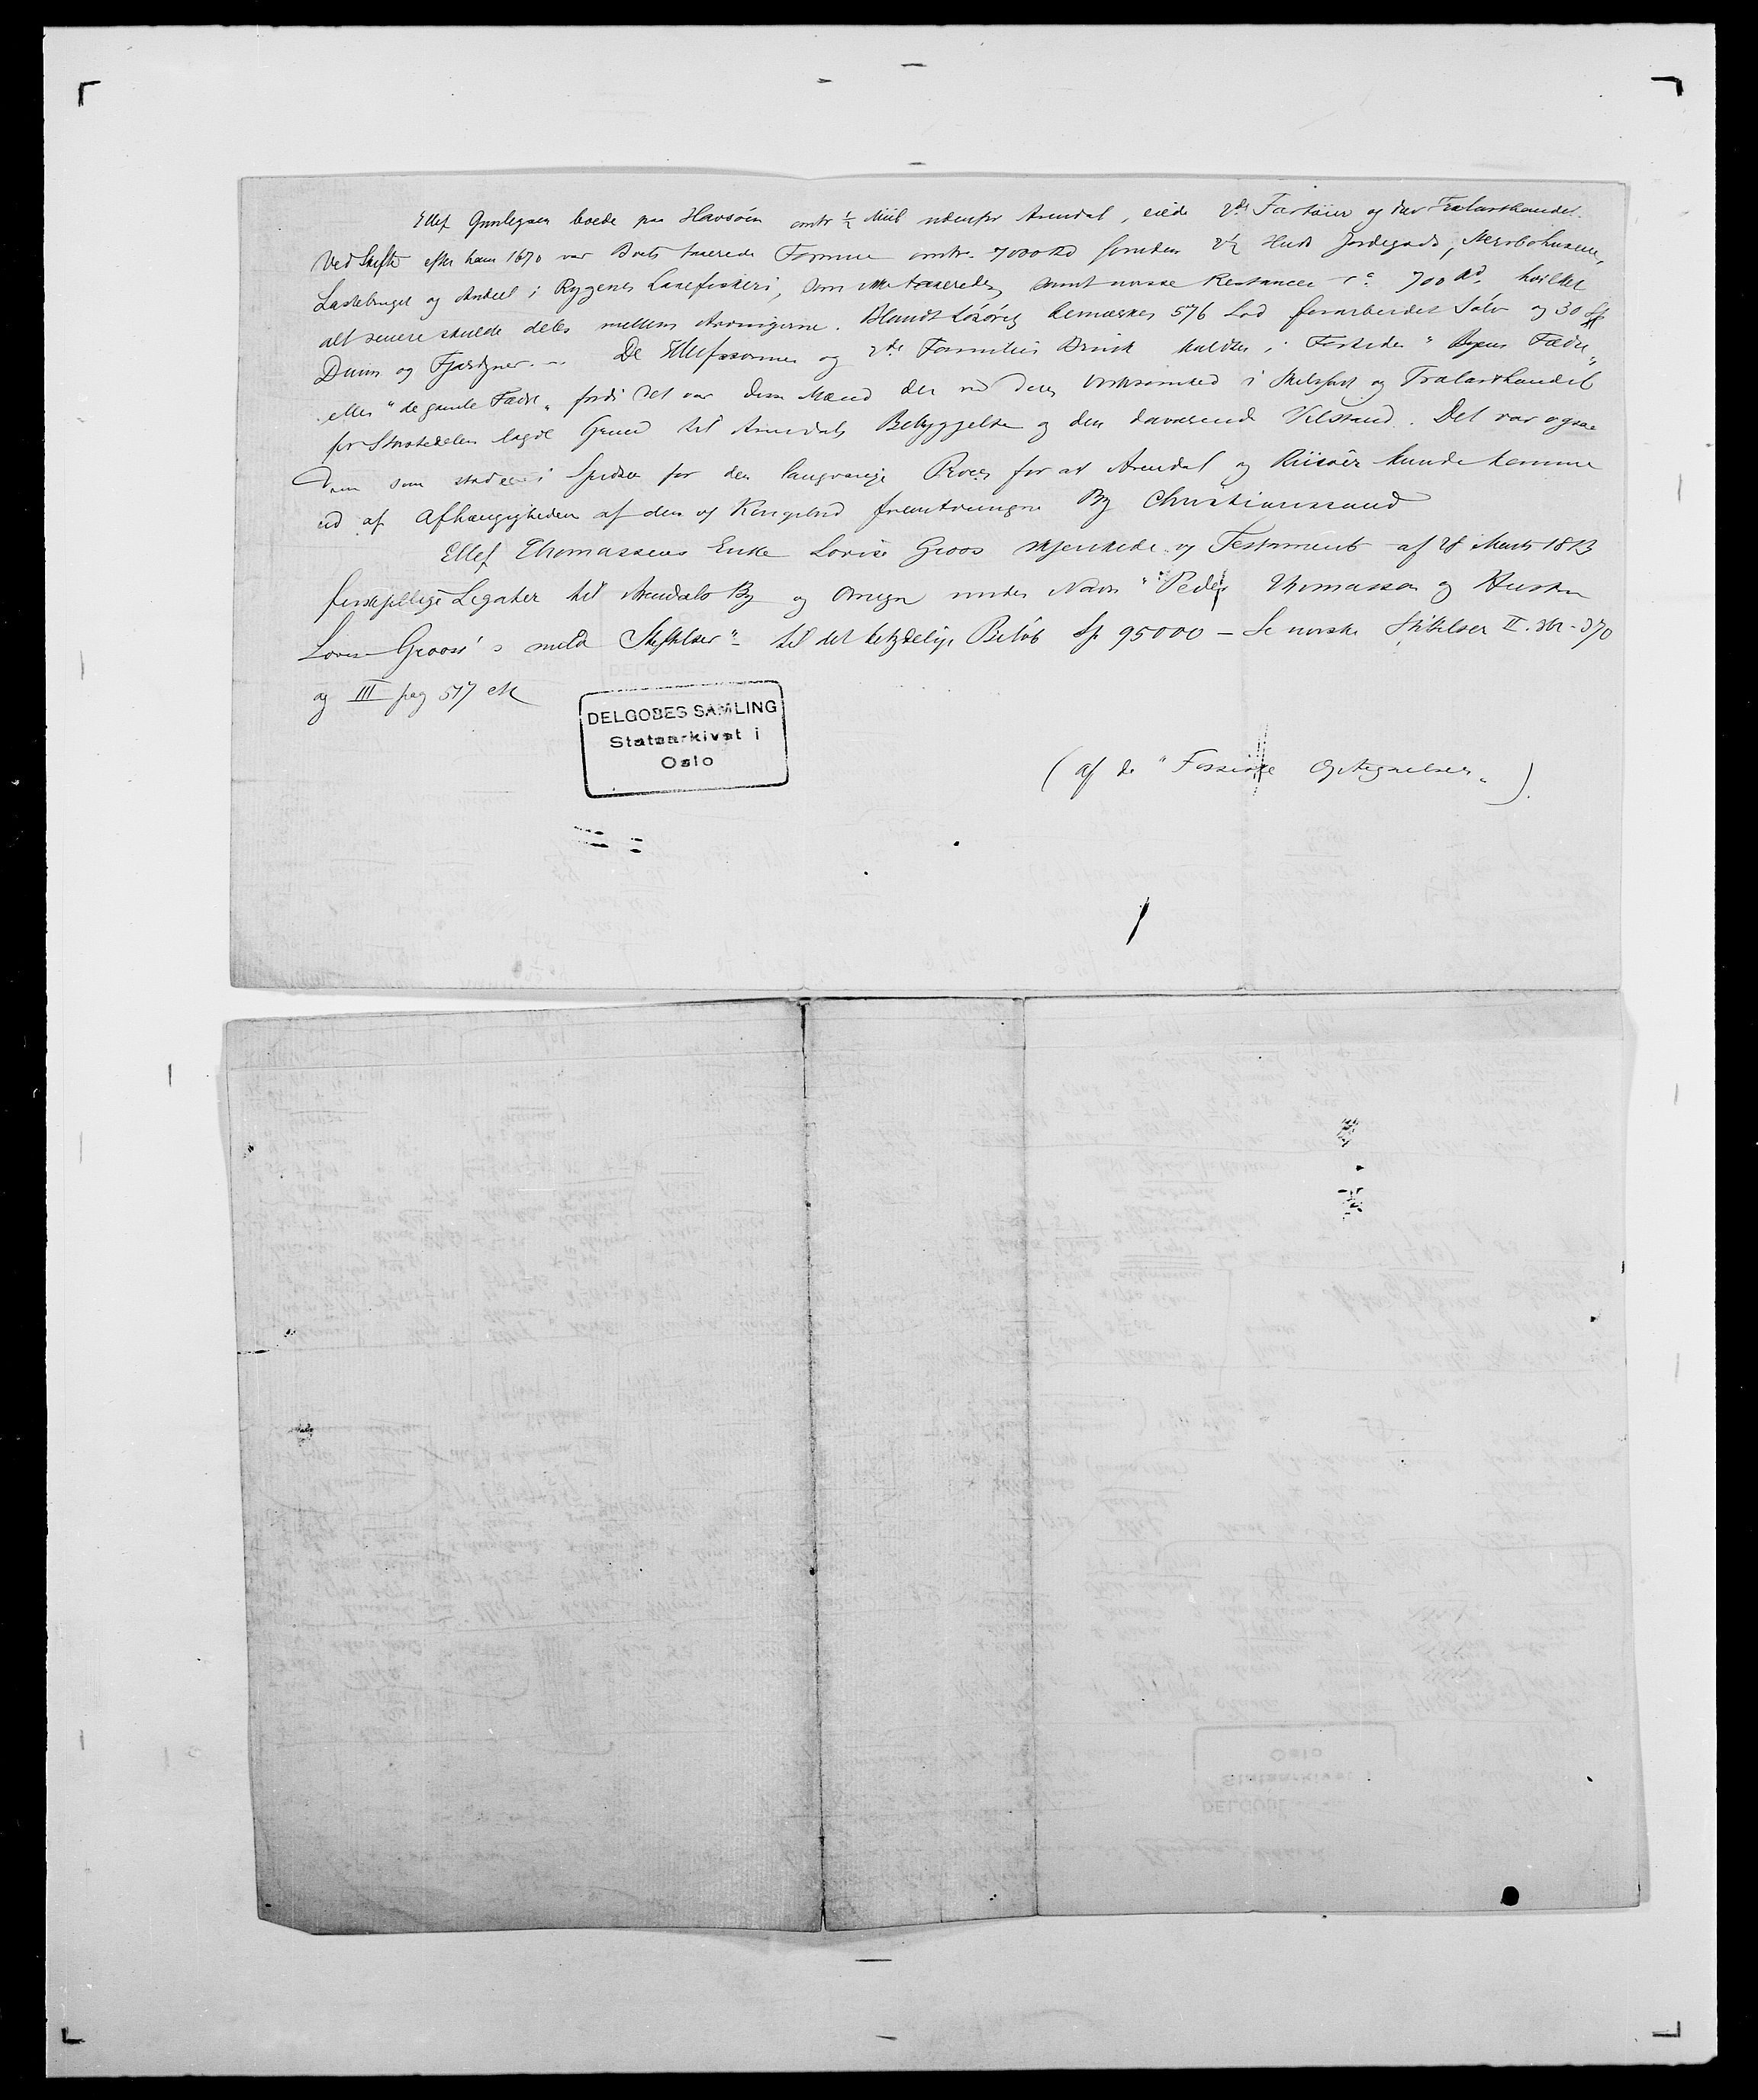 Ellef Gunlegsen boede paa Havsöen omtr ½ Miil udenfor Arendal, eiede Fartöier og drev Trælasthandel.
Ved Skifte efter ham 1670 var Boets taxerede Formue omtr. 7000 Rd foruden Huder Jordegods, Merdöhusene,
Lastebruget og Andeel i Rygenes Laxefiskeri, som ikke taxeredes samt Restancer 700 Rd. hvilket
alt senere skulde deles mellem Arvingerne. Blandt Lösöret bemærkes 576 Lod forarbeidet Sölv og 30
Duun og Fjærdyner. De Ellefsönner og Familier kaldtes i Fortiden "Byens Fædre"
eller "de gamle Fædre" fordi det var disse Mænd der ved deres Virksomhed i Skibsfart og Trælasthandel
for Störstedelen lagde Grund til Arendals Bebyggelse og den daværende Velstand. Det var ogsaa
Dem som stode i Spidsen for den langvarige Proces for at Arendal og Riisöer kunde komme
ud af Afhængigheden af den af Kongebud fremtvungne By Christianssand
Ellef Thomassens Enke Lovise Groos skjenkede Testament af 28 Marts 1823
forskjellige Legater til Arendals By og Omegn under Navn "Peder Thomassen og Hustru
Lovise Groos's milde Stiftelser" til det betydelige Belöb Sp 95000 – Se norske Stiftelser II. 362-370
og III pag 577 etc
DELGOBES SAMLING
Statsarkivet i
Oslo
(af de "Optegnelser")